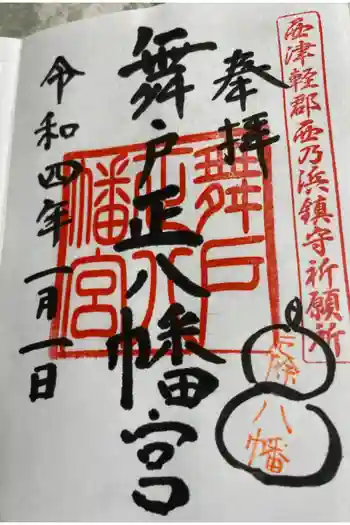 西津軽郡西乃浜鎮守祈願所
奉拝
舞戸正八幡宮
舞戸
正八
幡宮
八幡
令和四年一月一日